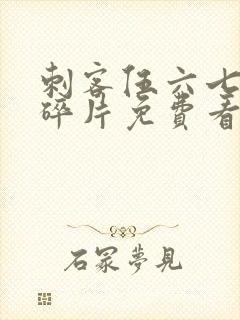 刺客伍六七
碎片免费看
石冥梦見